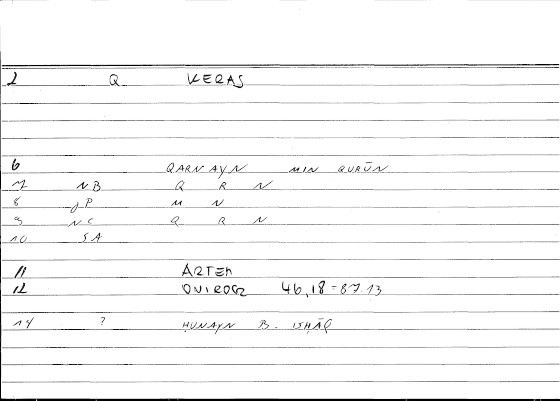 1 Q KERAS
6 QARNAYN MIN QURŪN
7 NB Q R N
8 gP M N
9 NC Q R N
10 SA
11 ARTEM
12 ONIROCR 46,18-87.13
14 ? ḤUNAYN B. ISḤĀQ